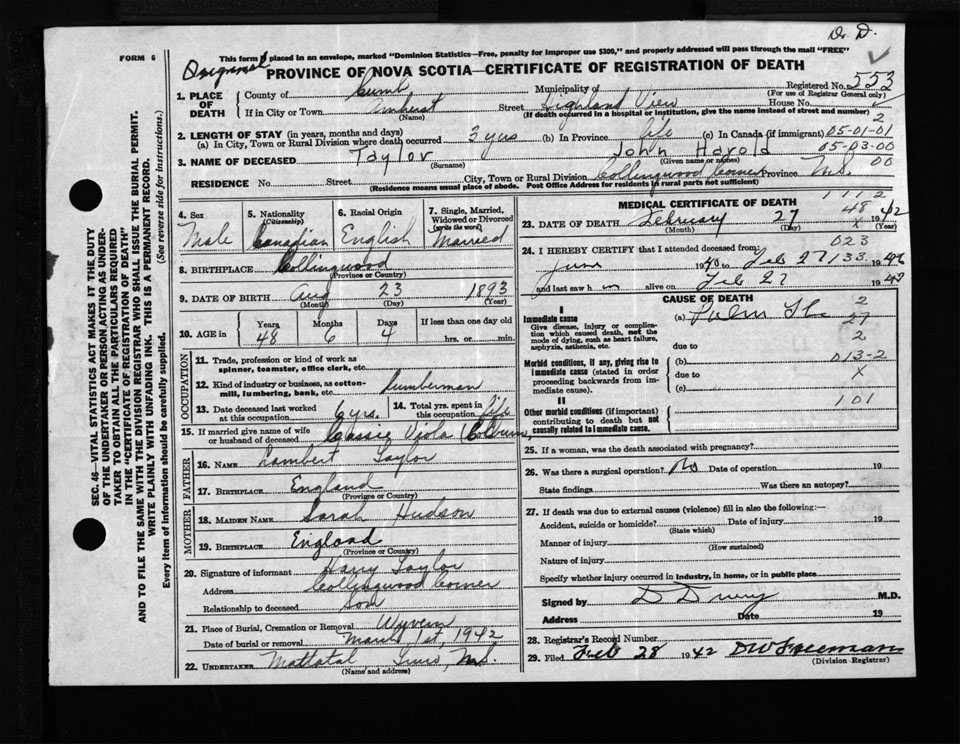 Dr. D.
FORM 6
This form if placed in an envelope, marked "Dominion Statistics—Free, penalty for improper use $300," and properly addressed will pass through the mail "FREE"
PROVINCE OF NOVA SCOTIA—CERTIFICATE OF REGISTRATION OF DEATH
Registered No. 553
(For use of Registrar General only)
1. PLACE OF DEATH County of Cumb Municipality of
If in City or Town Amherst Street Highland View House No.
(Name) (If death occurred in a hospital or institution, give the name instead of street and number)
2. LENGTH OF STAY (in years, months and days)
(a) In City, Town or Rural Division where death occurred 3 yrs (b) In Province life (c) In Canada (if immigrant) 05-01-01
05-03-00
3. NAME OF DECEASED Taylor John Harold
(Surname) (Given name or names)
RESIDENCE No. Street City, Town or Rural Division Collingwood Corner Province N.S. 00
(Residence means usual place of abode. Post Office Address for residents in rural parts not sufficient)
4. Sex Male
5. Nationality (Citizenship) Canadian
6. Racial Origin English
7. Single, Married, Widowed or Divorced (write the word) Married
8. BIRTHPLACE Collingwood
(Province or Country)
9. DATE OF BIRTH Aug 23 1893
(Month) (Day) (Year)
10. AGE in Years 48 Months 6 Days 4 If less than one day old hrs. or min.
OCCUPATION
11. Trade, profession or kind of work as spinner, teamster, office clerk, etc.
12. Kind of industry or business, as cotton-mill, lumbering, bank, etc. Lumberman
13. Date deceased last worked at this occupation 6 yrs. 14. Total yrs. spent in this occupation life
15. If married give name of wife or husband of deceased Viola
FATHER
16. NAME Lambert Taylor
17. BIRTHPLACE England
(Province or Country)
MOTHER
18. MAIDEN NAME Sarah Hudson
19. BIRTHPLACE England
(Province or Country)
20. Signature of informant Harry Taylor
Address Collingwood Corner
Relationship to deceased Son
21. Place of Burial, Cremation or Removal Wyvern
Date of burial or removal March 1st, 1942
22. UNDERTAKER Mattatal N.S.
(Name and address)
MEDICAL CERTIFICATE OF DEATH
23. DATE OF DEATH February 27 1942
(Month) (Day) (Year)
24. I HEREBY CERTIFY that I attended deceased from:
June 1940 to Feb 27 1942
and last saw h im alive on Feb 27 1942
CAUSE OF DEATH
I
Immediate cause
Give disease, injury or complication which caused death, not the mode of dying, such as heart failure, asphyxia, asthenia, etc.
(a) Pulm Tb. 2
27
due to 2
Morbid conditions, if any, giving rise to immediate cause (stated in order proceeding backwards from immediate cause).
(b) 013-2
due to X
(c)
II
Other morbid conditions (if important) contributing to death but not causally related to immediate cause. 101
25. If a woman, was the death associated with pregnancy?
26. Was there a surgical operation? No Date of operation 19
State findings Was there an autopsy?
27. If death was due to external causes (violence) fill in also the following:—
Accident, suicide or homicide? Date of injury 19
(State which)
Manner of injury
(How sustained)
Nature of injury
Specify whether injury occurred in industry, in home, or in public place
Signed by D Drury M.D.
Address Date 19
28. Registrar's Record Number
29. Filed Feb 28 1942 DW Freeman
(Division Registrar)
SEC. 46—VITAL STATISTICS ACT MAKES IT THE DUTY
OF THE UNDERTAKER OR PERSON ACTING AS UNDER-
TAKER TO OBTAIN ALL THE PARTICULARS REQUIRED
IN THE "CERTIFICATE OF REGISTRATION OF DEATH"
AND TO FILE THE SAME WITH THE DIVISION REGISTRAR WHO SHALL ISSUE THE BURIAL PERMIT.
WRITE PLAINLY WITH UNFADING INK. THIS IS A PERMANENT RECORD.
Every item of information should be carefully supplied. (See reverse side for instructions.)